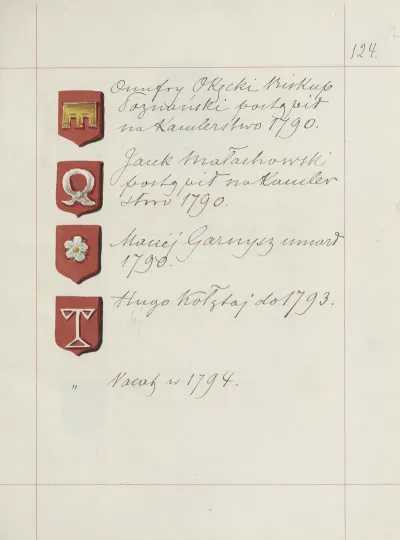 124.
Onufry Okęcki Biskup
Poznański postąpił
na Kanclerstwo 1790.
Jacek Małachowski
postąpił na Kancler
stwo 1790.
Maciej Garnysz umarł
1790.
Hugo Kołłątaj do 1793.
„ Vacat w 1794.